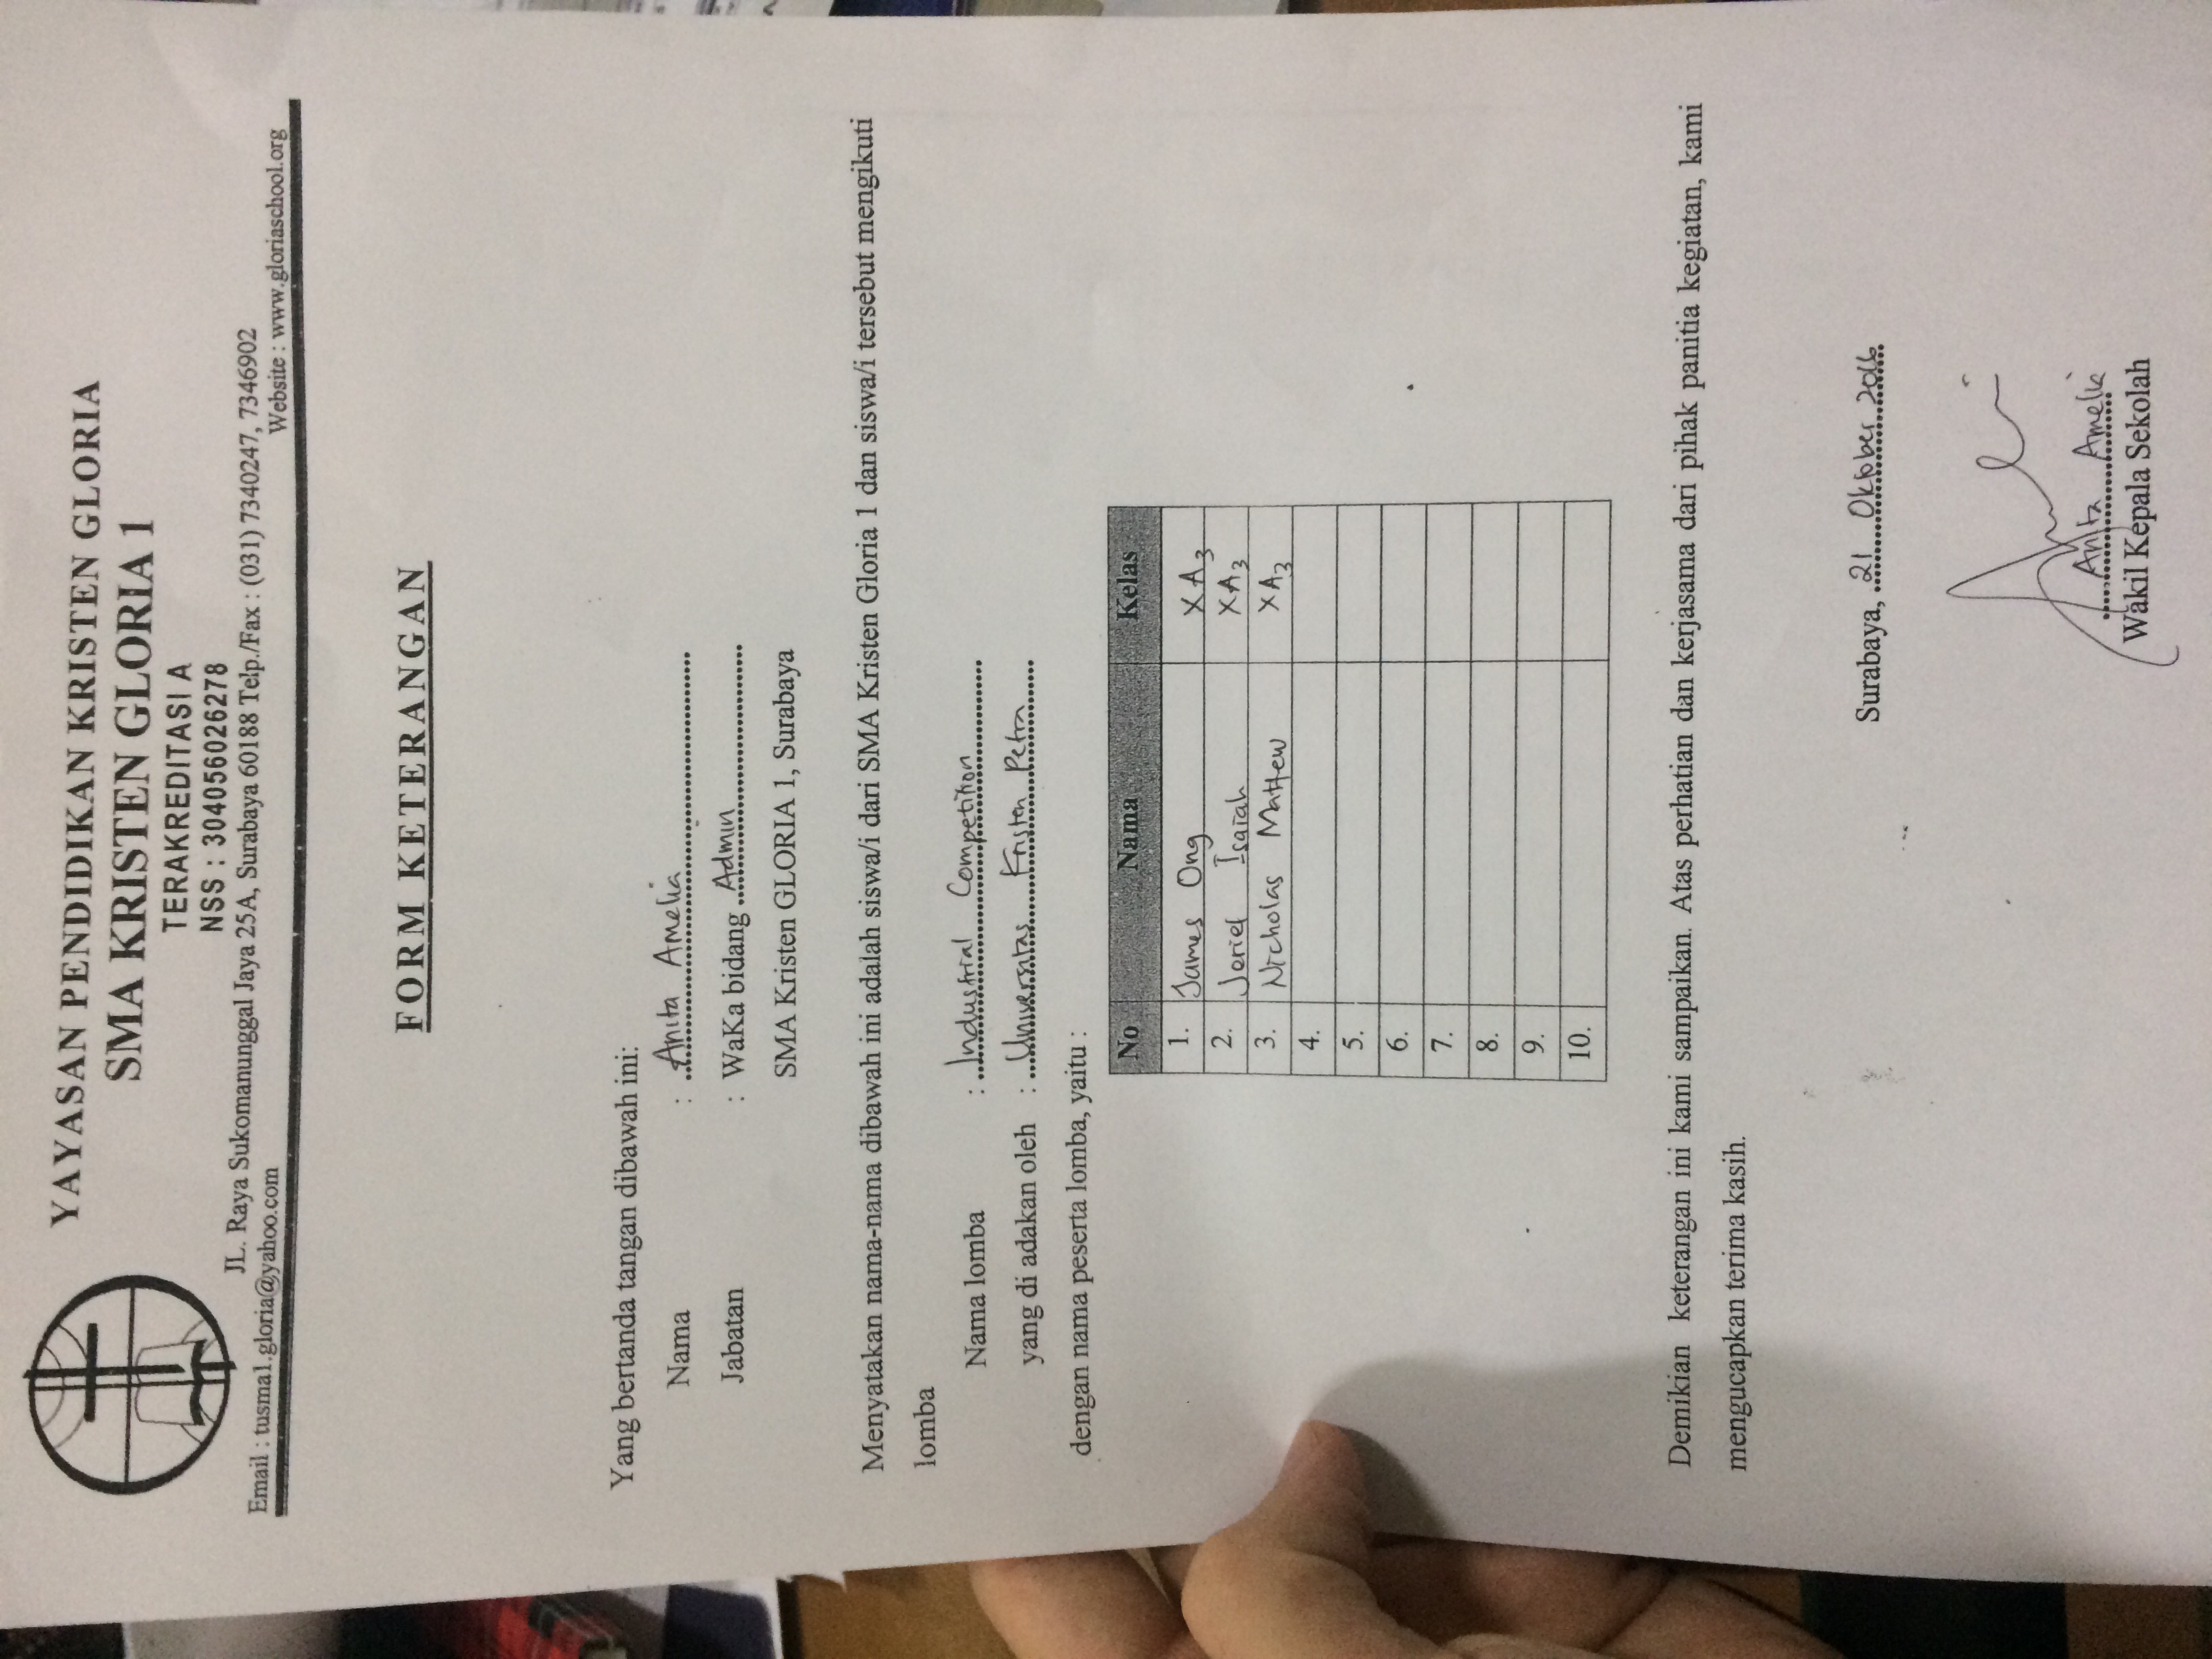 YAYASAN PENDIDIKAN KRISTEN GLORIA
SMA KRISTEN GLORIA 1
TERAKREDITASI A
NSS : 304056026278
JL. Raya Sukomanunggal Jaya 25A, Surabaya 60188 Telp./Fax : (031) 7340247, 7346902
Email : tusma1.gloria@yahoo.com Website : www.gloriaschool.org
FORM KETERANGAN
Yang bertanda tangan dibawah ini:
Nama : Anita Amelia
Jabatan : WaKa bidang Admin
SMA Kristen GLORIA 1, Surabaya
Menyatakan nama-nama dibawah ini adalah siswa/i dari SMA Kristen Gloria 1 dan siswa/i tersebut mengikuti
lomba
Nama lomba : Industrial Competition
yang di adakan oleh : Universitas Kristen Petra
dengan nama peserta lomba, yaitu :
No Nama Kelas
1. James Ong XA3
2. Jeriel Isaiah XA3
3. Nicholas Mattew XA3
4.
5.
6.
7.
8.
9.
10.
Demikian keterangan ini kami sampaikan. Atas perhatian dan kerjasama dari pihak panitia kegiatan, kami
mengucapkan terima kasih.
Surabaya, 21 Oktober 2016
Anita Amelia
Wakil Kepala Sekolah